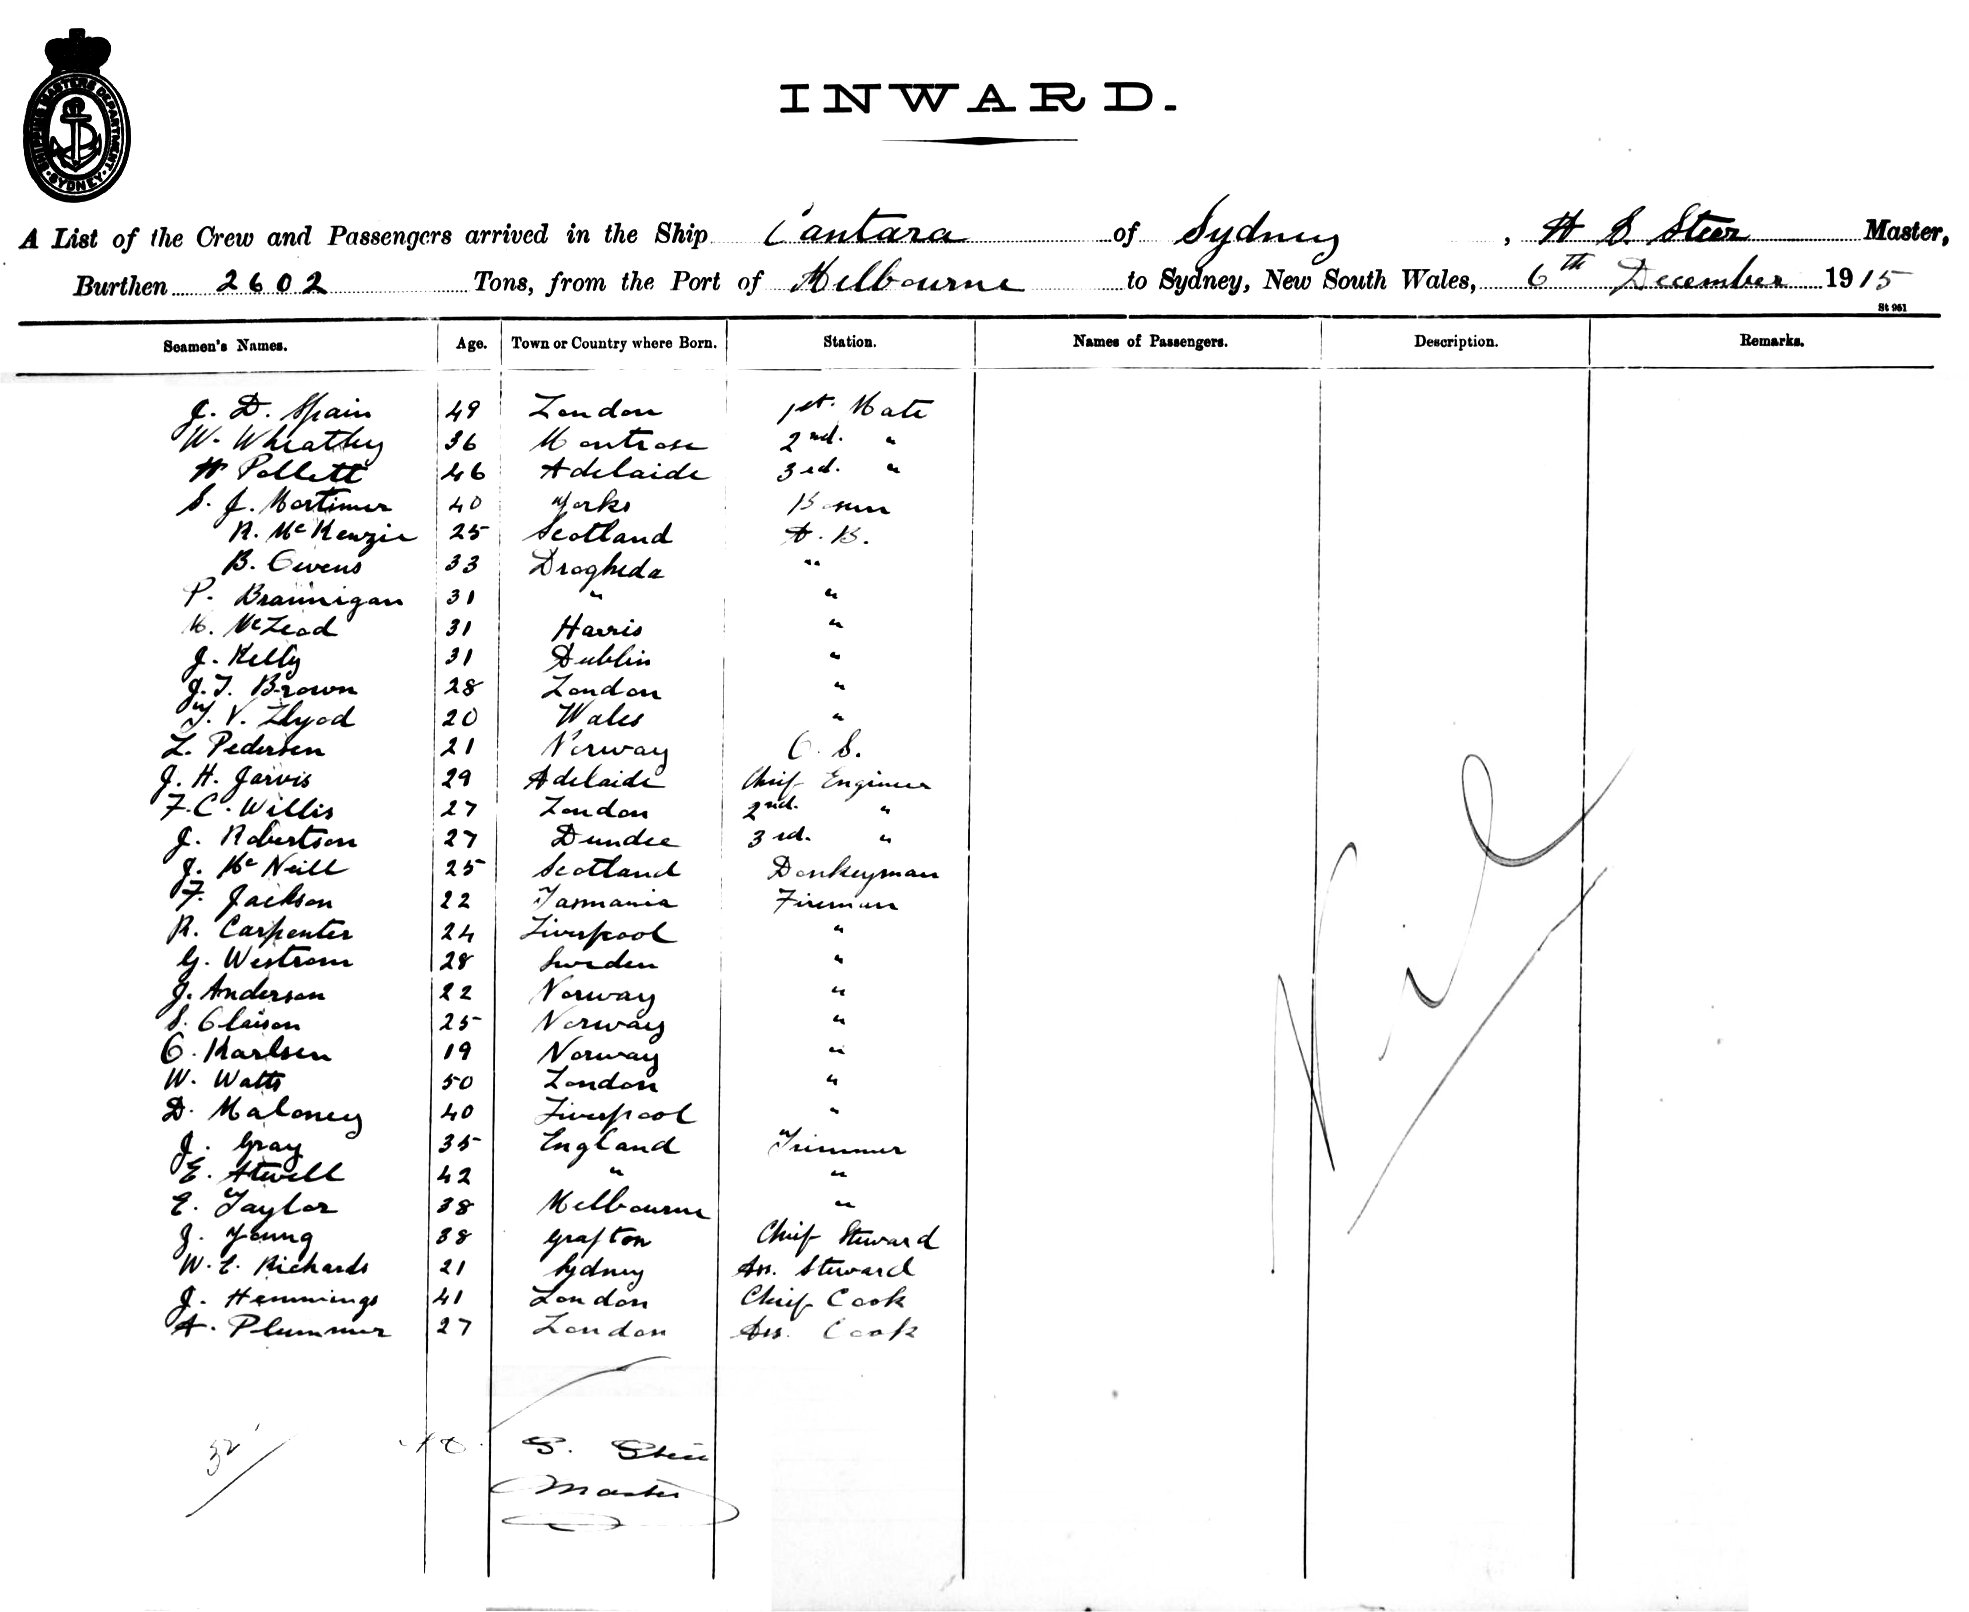 SHIPPING MASTERS DEPARTMENT
SYDNEY
INWARD.
A List of the Crew and Passengers arrived in the Ship Cantara of Sydney, H S. Steer Master,
Burthen 2602 Tons, from the Port of Melbourne to Sydney, New South Wales, 6th December 1915
St 961
Seamen's Names. Age. Town or Country where Born. Station. Names of Passengers. Description. Remarks.
J. D. Spain 49 London 1st. Mate
W. Wheatley 36 Montrose 2nd. "
H Pollett 46 Adelaide 3rd. "
S. J. Mortimer 40 Yorks Bosun
R. McKenzie 25 Scotland A. B.
B. Owens 33 Drogheda "
P. Brannigan 31 " "
K. McLeod 31 Harris "
J. Kelly 31 Dublin "
J. T. Brown 28 London "
T. V. Llyod 20 Wales "
L. Pedersen 21 Norway O. S.
J. H. Jarvis 29 Adelaide Chief Engineer
F. C. Willis 27 London 2nd. "
J. Robertson 27 Dundee 3rd. "
J. McNeill 25 Scotland Donkeyman
F. Jackson 22 Tasmania Fireman
R. Carpenter 24 Liverpool "
G. Westrom 28 Sweden "
J. Anderson 22 Norway "
S. Olaison 25 Norway "
O. Karlsen 19 Norway "
W. Watts 50 London "
D. Maloney 40 Liverpool "
J. Gray 35 England Trimmer
E. Atwell 42 " "
E. Taylor 38 Melbourne "
J. Young 38 Grafton Chief Steward
W. E. Richards 21 Sydney Ass. Steward
J. Hemmings 41 London Chief Cook
A. Plummer 27 London Ass. Cook
Nil
32
S. Steer
Master